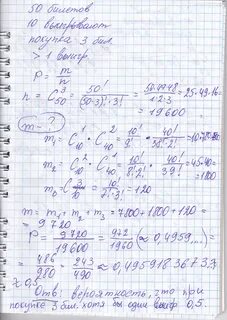 50 билетов
10 выигрывают
покупка 3 бил.
> 1 выигр.
P = m/n
n = C₅₀³ = 50!/((50-3)!·3!) = 50·49·48/(1·2·3) = 25·49·16 =
= 19600
m - ?
m₁ = C₁₀¹ · C₄₀² = 10!/9! · 40!/(38!·2!) = 10·
m₂ = C₁₀² · C₄₀¹ = 10!/(8!·2!) · 40!/39! = 45·40 =
= 1800
m₃ = C₁₀³ = 10!/(7!·3!) = 120
m = m₁ + m₂ + m₃ = 7800 + 1800 + 120 =
= 9720
P = 9720/19600 = 972/1960 (≈ 0,4959...) =
= 486/980 = 243/490 ≈ 0,4959183673
≈ 0,5
Отв: вероятность, что при
покупке 3 бил. хотя бы один выигр 0,5.